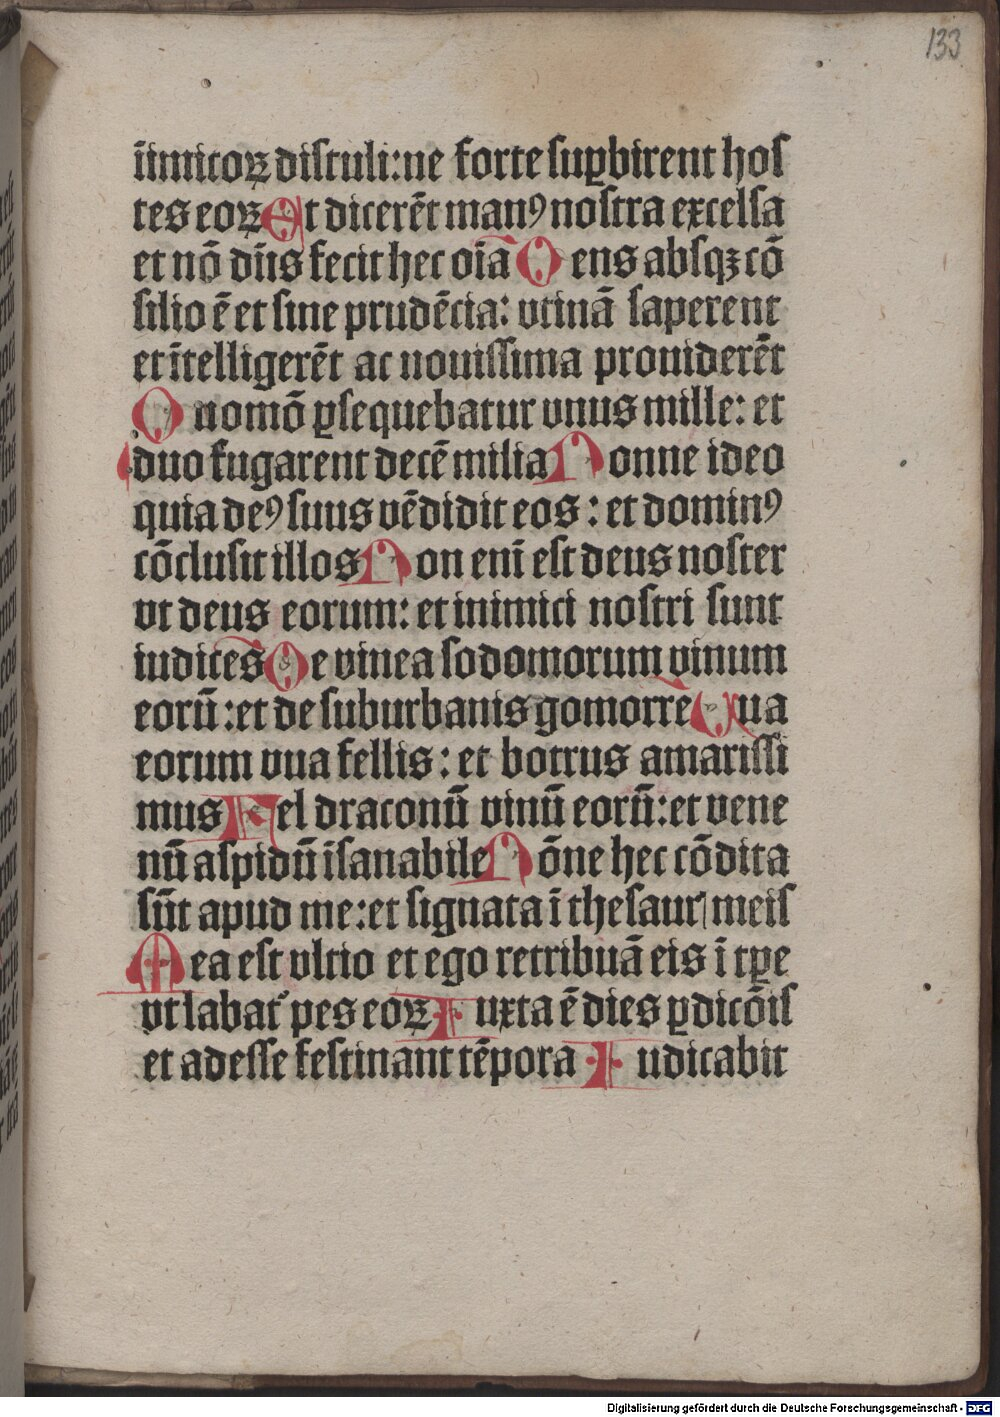 133
iimicoꝝ distuli: ne forte suꝑbirent hos
tes eoꝝ Et dicerēt manꝰ nostra excelsa
et nō dn̄s fecit hec oīa Gens absqꝫ cō
silio ē et sine prudēcia: vtinā saperent
et ītelligerēt ac nouissima prouiderēt
Quomō ꝑsequebatur vnus mille: et
duo fugarent decē milia Nonne ideo
quia deꝰ suus vēdidit eos: et dominꝰ
cōclusit illos Non enī est deus noster
vt deus eorum: et inimici nostri sunt
iudices De vinea sodomorum vinum
eorū: et de suburbanis gomorre Uua
eorum vua fellis: et botrus amarissi
mus Fel draconū vinū eorū: et vene
nū aspidū īsanabile Nōne hec cōdita
sūt apud me: et signata ī thesaur meis
Mea est vltio et ego retribuā eis ī tꝑe
vt labat᷑ pes eoꝝ Iuxta ē dies ꝑdicōis
et adesse festinant tēpora Iudicabit
Digitalisierung gefördert durch die Deutsche Forschungsgemeinschaft - DFG